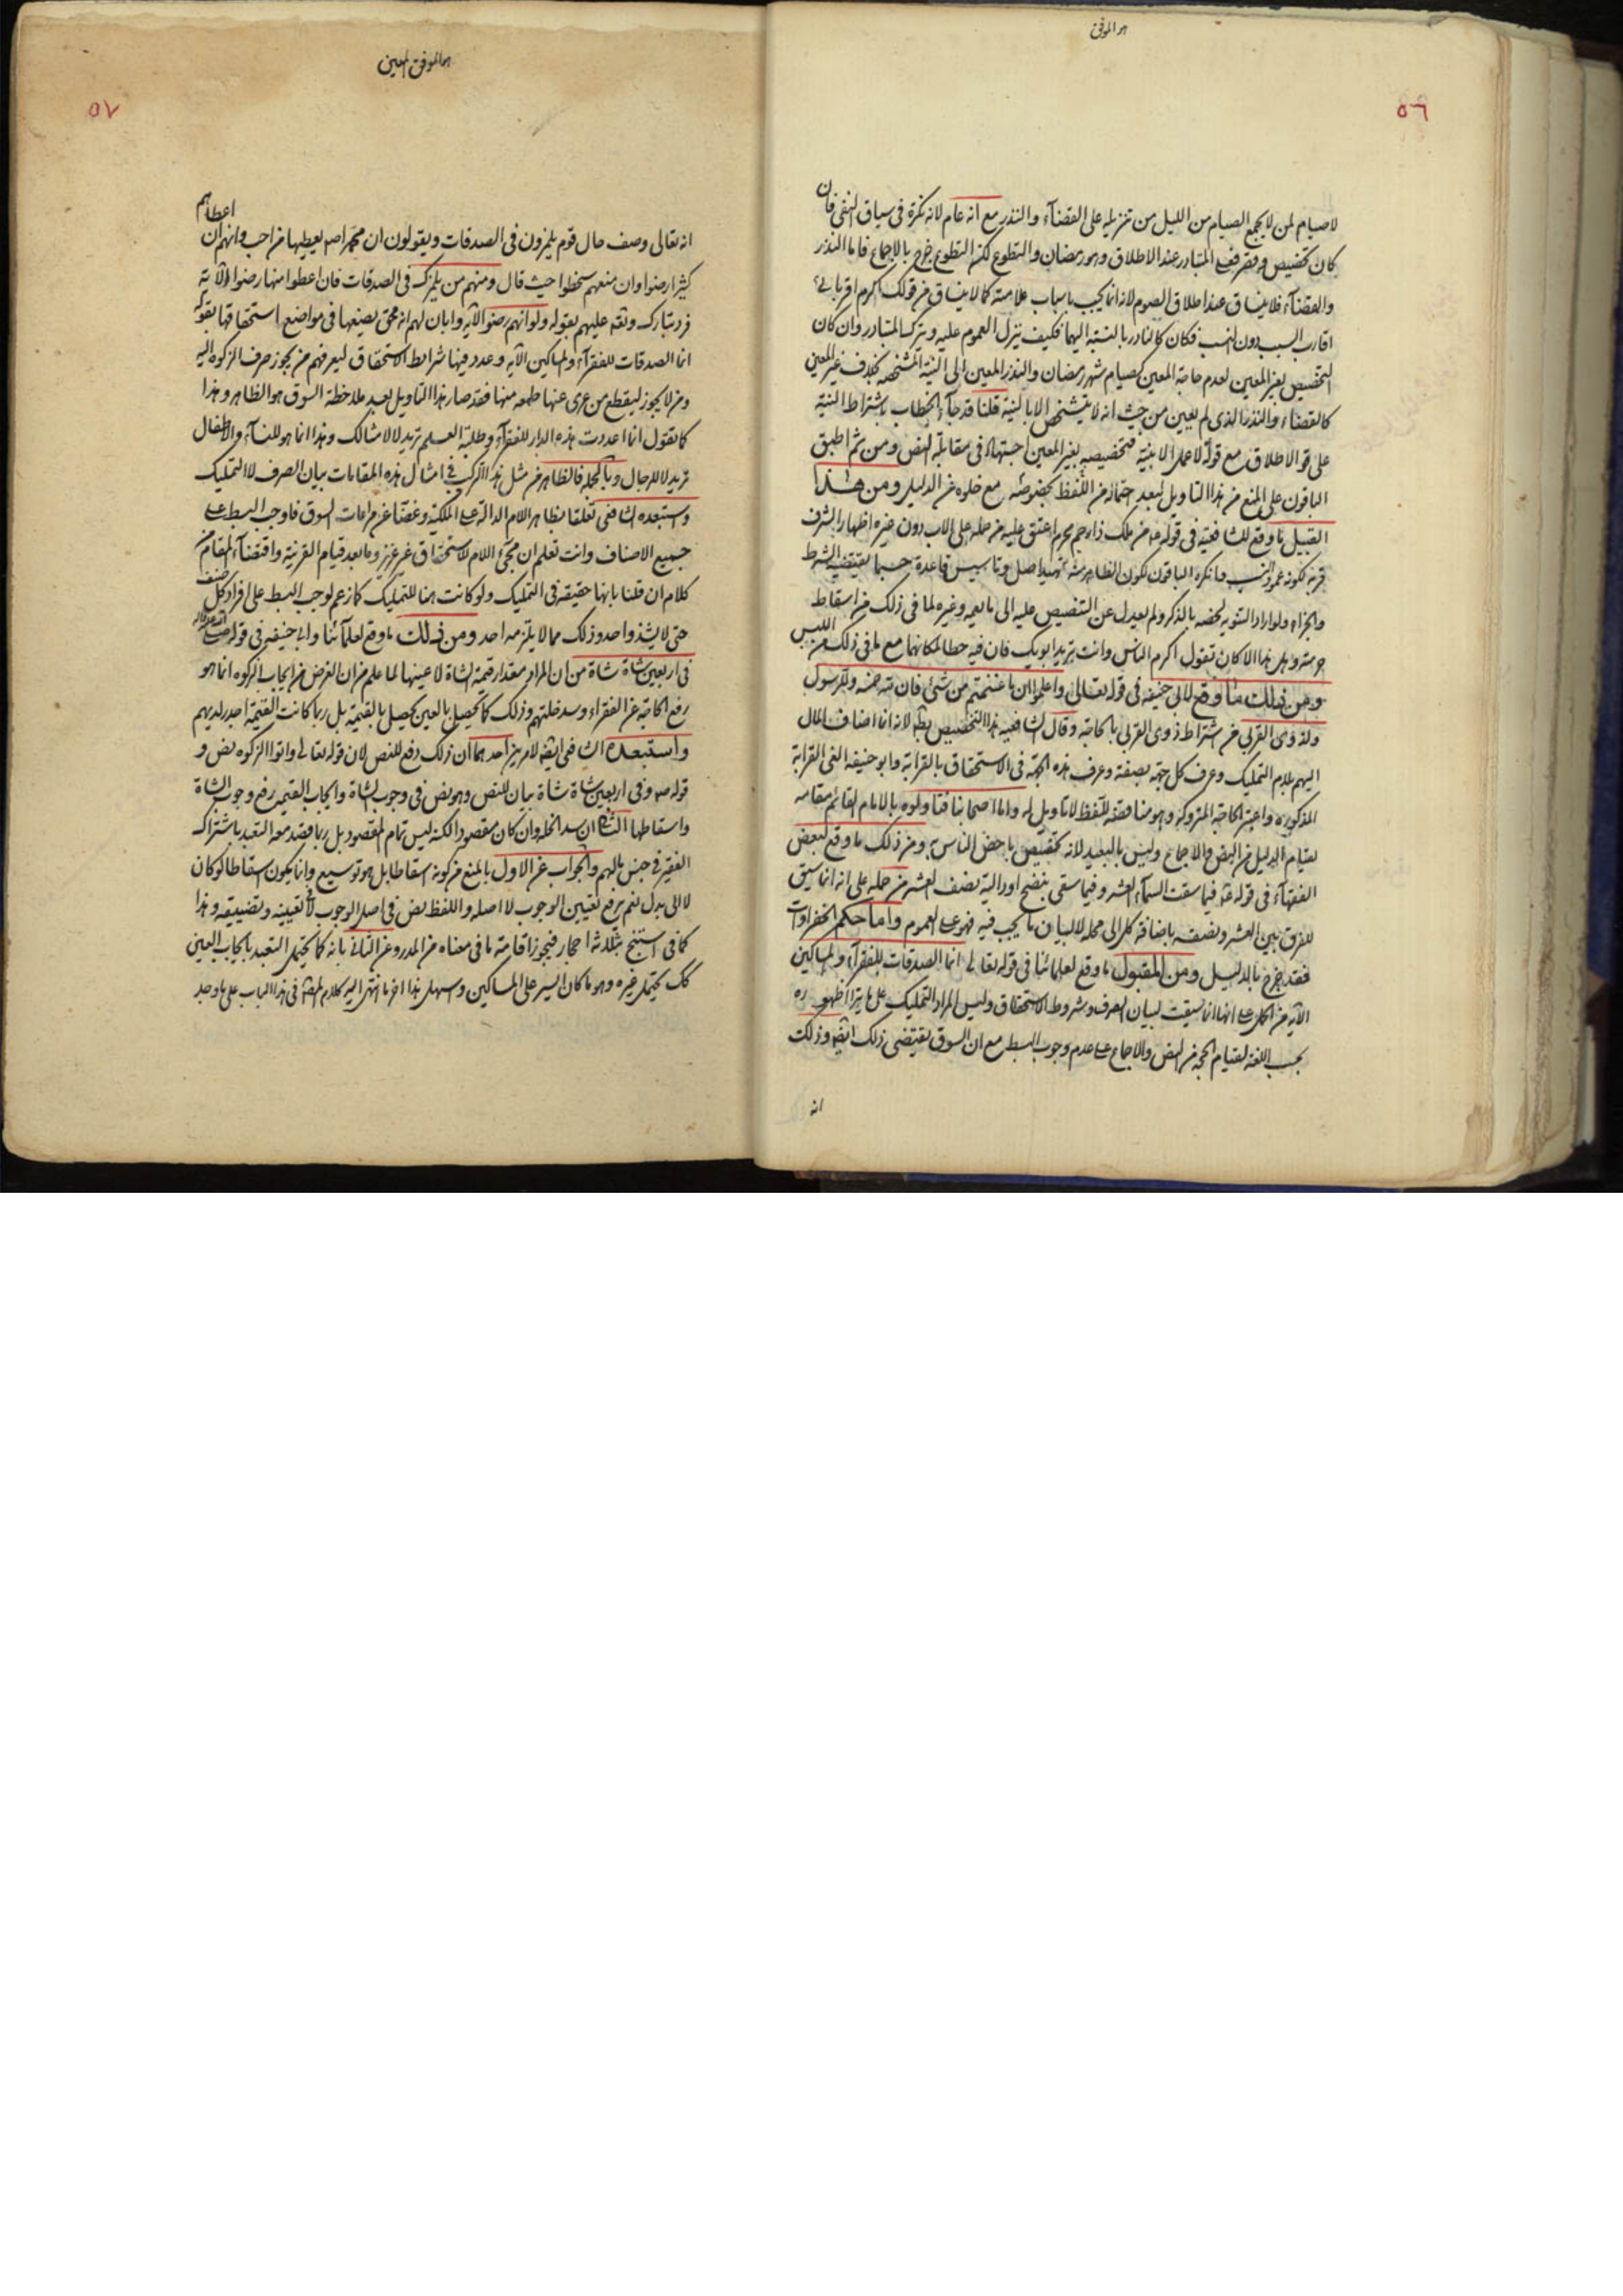 هو الموفق
٥٦
لا صيام لمن لا يجمع الصيام من الليل من تنزيله على القضآء والنذر مع انه عام لانه نكرة فى سياق النفى فان
كان تخصيص وقصر فعلى المتبادر عند الاطلاق وهو رمضان والتطوع لكن التطوع خرج بالاجماع فاما النذر
والقضآء فلا ينساق عند اطلاق الصوم لانه انما يجب باسباب علامته كما لا ينساق من قولك اكرم اقربائى
اقارب السبب دون النسب فكان كالنادر بالنسبة اليهما فكيف ينزل العموم عليه ويترك المتبادر وان كان
التخصيص بغير المعين لعدم حاجة المعين كصيام شهر رمضان والنذر المعين الى النية المشخصه بخلاف غير المعين
كالقضاء والنذر الذى لم يعين من حيث انه لا يتشخص الا بالنية قلنا قد جآء الخطاب باشتراط النية
على الاطلاق مع قوله لا عمل الا بنية فتخصيصه بغير المعين اجتهاد فى مقابلة النص ومن ثم اطبق
الباقون على المنع من هذا التاويل لبعد احتماله من اللفظ بخصوصه مع خلوه عن الدليل ومن هذا
القبيل ما وقع للشافعية فى قوله من ملك ذا رحم محرم اعتق عليه من حمله على الاب دون غيره اظهار الشرف
قربه لكونه عمود النسب وانكره الباقون لكون الظاهر منه تمهيد اصل وتاسيس قاعدة حسبما يقتضيه الشرط
والجزاء ولو اراد التنويه لخصه بالذكر ولم يعدل عن التنصيص عليه الى ما يعمه وغيره لما فى ذلك من اسقاط
حرمته وهل هذا الا كان تقول اكرم الناس وانت تريد ابويك فان فيه حطا لمكانهما مع ما فى ذلك من اللبس
ومن ذلك ما وقع لابى حنيفه فى قوله تعالى واعلموا ان ما غنمتم من شئ فان لله خمسه وللرسول
ولذوى القربى من اشتراط ذوى القربى بالحاجة وقال الشافعيه هذا التخصيص بط لانه انما اضاف المال
اليهم بلام التمليك وعرف كل جهة بصفته وعرف هذه الجهة فى الاستحقاق بالقرابة وابو حنيفه الغى القرابة
المذكوره واعتبر الحاجة المتروكه وهو مناقضة للفظ لا تاويل له واما اصحابنا فتاولوه بالامام القائم مقامه
لقيام الدليل من النص والاجماع وليس بالبعيد لانه تخصيص باخص الناس به ومن ذلك ما وقع لبعض
الفقهآء فى قوله فيما سقت السمآء العشر وفيما سقى بنضح او دالية نصف العشر من حمله على انه انما سيق
للفرق بين العشر ونصفه باضافة كل الى محله لا لبيان ما يجب فيه فهو على العموم واما حكم الخضراوات
فقد خرج بالدليل ومن المقبول ما وقع لعلمائنا فى قوله تعالى انما الصدقات للفقرآء والمساكين
الآية من الحمل على انها انما سيقت لبيان المصرف وشروط الاستحقاق وليس المراد التمليك على ما يترا اظهوره
بحسب اللغة لقيام الحجة من النص والاجماع على عدم وجوب البسط مع ان السوق يقتضى ذلك ايضا وذلك
انه
هو الموفق المعين
٥٧
انه تعالى وصف حال قوم يلمزون فى الصدقات ويقولون ان محمدا ص يعطيها من احب وانهم ان اعطاهم
كثيرا رضوا وان منعهم سخطوا حيث قال ومنهم من يلمزك فى الصدقات فان اعطوا منها رضوا الآية
فرد تبارك وتعه عليهم بقوله ولو انهم رضوا الآية وابان لهم انه محق يضعها فى مواضع استحقاقها بقوله
انما الصدقات للفقرآء والمساكين الآية وعدد فيها شرايط الاستحقاق ليعرفهم من يجوز صرف الزكوة اليه
ومن لا يجوز ليقطع من عرى عنها طمعه منها فقد صار هذا التاويل بعد ملاحظة السوق هو الظاهر وهذا
كما تقول انما اعددت هذه الدار للفقرآء وطلبة العلم تريد لا لامثالك وهذا انما هو للنسآء والاطفال
تريد لا للرجال وبالجمله فالظاهر من مثل هذا التركيب فى امثال هذه المقامات بيان المصرف لا التمليك
واستبعده الشافعى تعلقا بظاهر اللام الدالة على الملكية وغضا عن مراعات السوق فاوجب البسط على
جميع الاصناف وانت تعلم ان مجئ اللام للاستحقاق غير عزيز وما بعد قيام القرينة واقتضآء المقام من
كلام ان قلنا بانها حقيقة فى التمليك ولو كانت هنا للتمليك كما زعم لوجب البسط على افراد كل صنف
حتى لا يشذ واحد وذلك مما لا يلتزمه احد ومن ذلك ما وقع لعلمآئنا وابى حنيفه فى قوله صلى الله عليه واله
فى اربعين شاة شاة من ان المراد مقدار قيمة الشاة لا عينها لما علم من ان الغرض من ايجاب الزكوه انما هو
رفع الحاجة عن الفقراء وسد خلتهم وذلك كما يحصل بالعين يحصل بالقيمة بل ربما كانت القيمة اجدر لديهم
واستبعده الشافعى ايضه لامرين احدهما ان ذلك دفع للنص لان قوله تعالى واتوا الزكوه نص و
قوله ص وفى اربعين شاة شاة بيان للنص وهو نص فى وجوب الشاة وايجاب القيمه رفع وجوب الشاة
واسقاطها الثانى ان سد الخله وان كان مقصودا لكنه ليس تمام المقصود بل ربما قصد معه التعبد باشتراك
الفقير فى جنس مالهم والجواب عن الاول بالمنع من كونه اسقاطا بل هو توسيع وانما يكون اسقاطا لو كان
لا الى بدل نعم يرفع تعيين الوجوب لا اصله واللفظ نص فى اصل الوجوب لا تعيينه وتضييقه وهذا
كما فى استنج بثلاثة احجار فيجوز اقامة ما فى معناه من المدر وعن الثانى بانه كما يحتمل التعبد بايجاب العين
كك يحتمل غيره وهو ما كان ايسر على المساكين وسهل هذا اخر ما انتهى اليه كلام المصنف فى هذا الباب على ما وجد